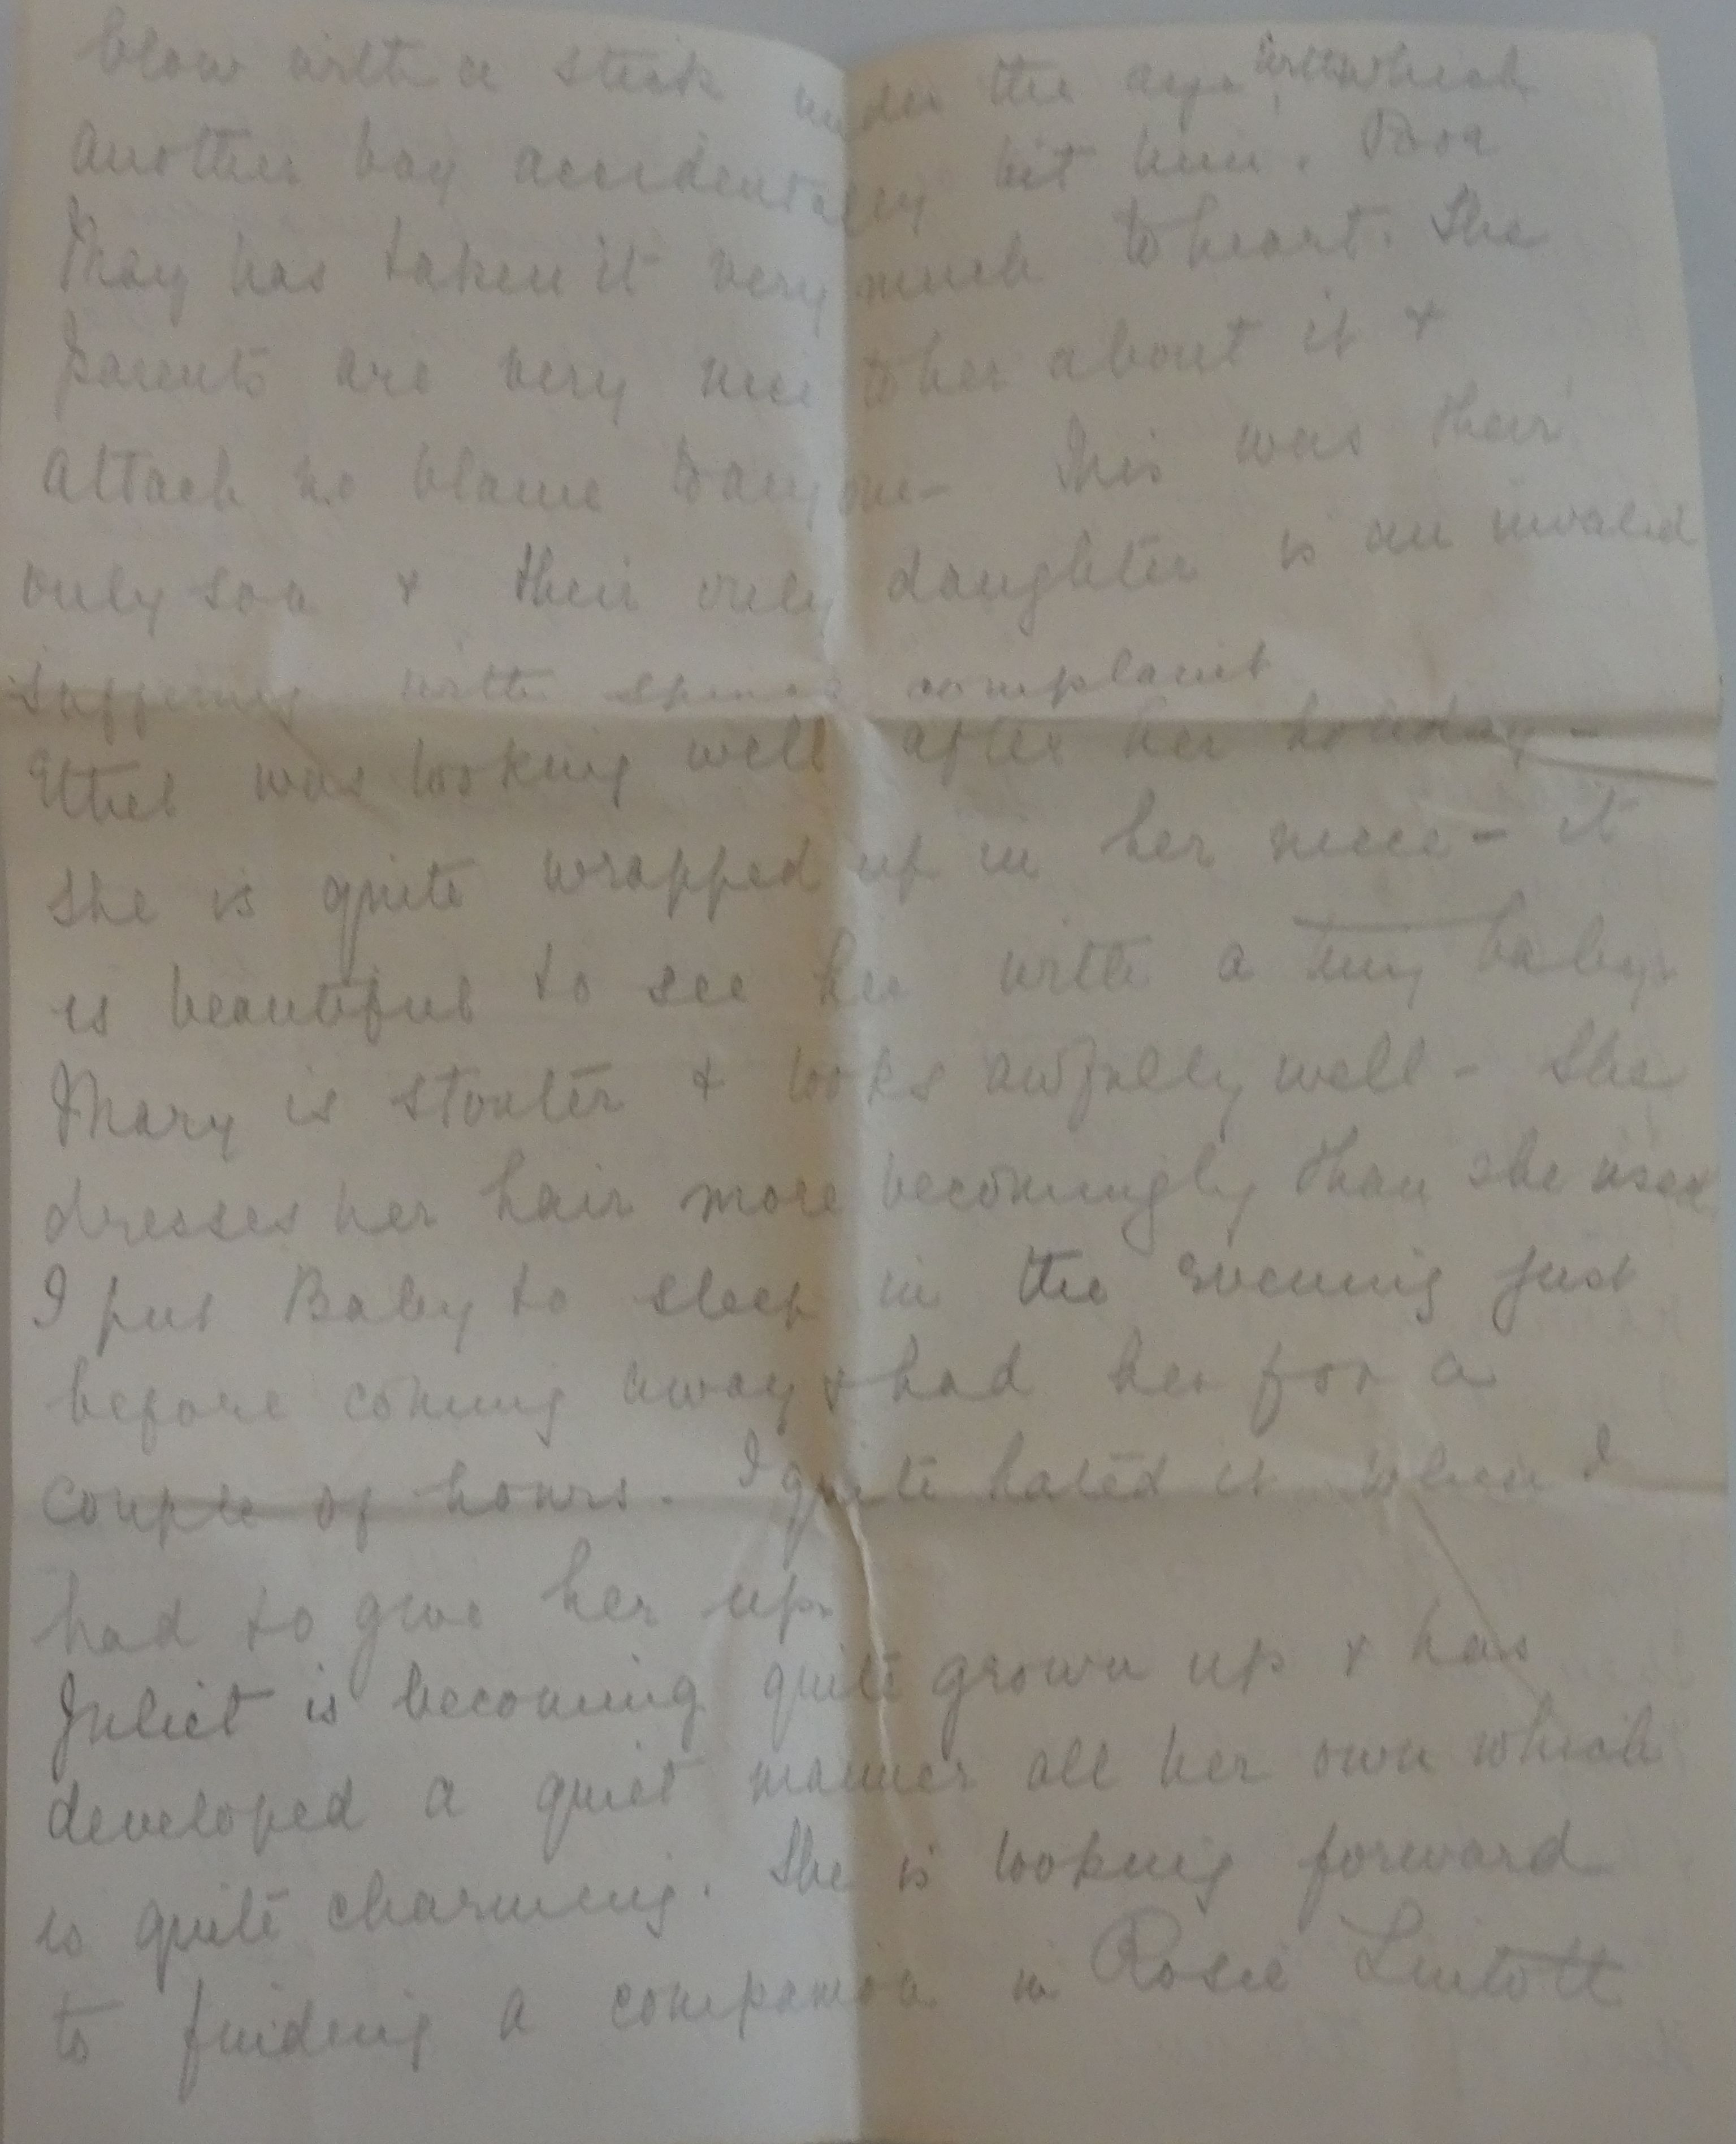 blow with a stick under the eye with which
another boy accidentally hit him. Poor
May has taken it very much to heart. The
parents are very nice to her about it &
attach no blame to anyone - This was their
only son & their only daughter is an invalid
suffering with spinal complaint
Ethel was looking well after her holiday -
She is quite wrapped up in her niece - it
is beautiful to see her with a tiny baby.
Mary is stouter & looks awfully well - She
dresses her hair more becomingly than she used
I put Baby to sleep in the evening just
before coming away & had her for a
couple of hours. I quite hated it when I
had to give her up.
Juliet is becoming quite grown up & has
developed a quiet manner all her own which
is quite charming. She is looking forward
to finding a companion in Rosie Lintott